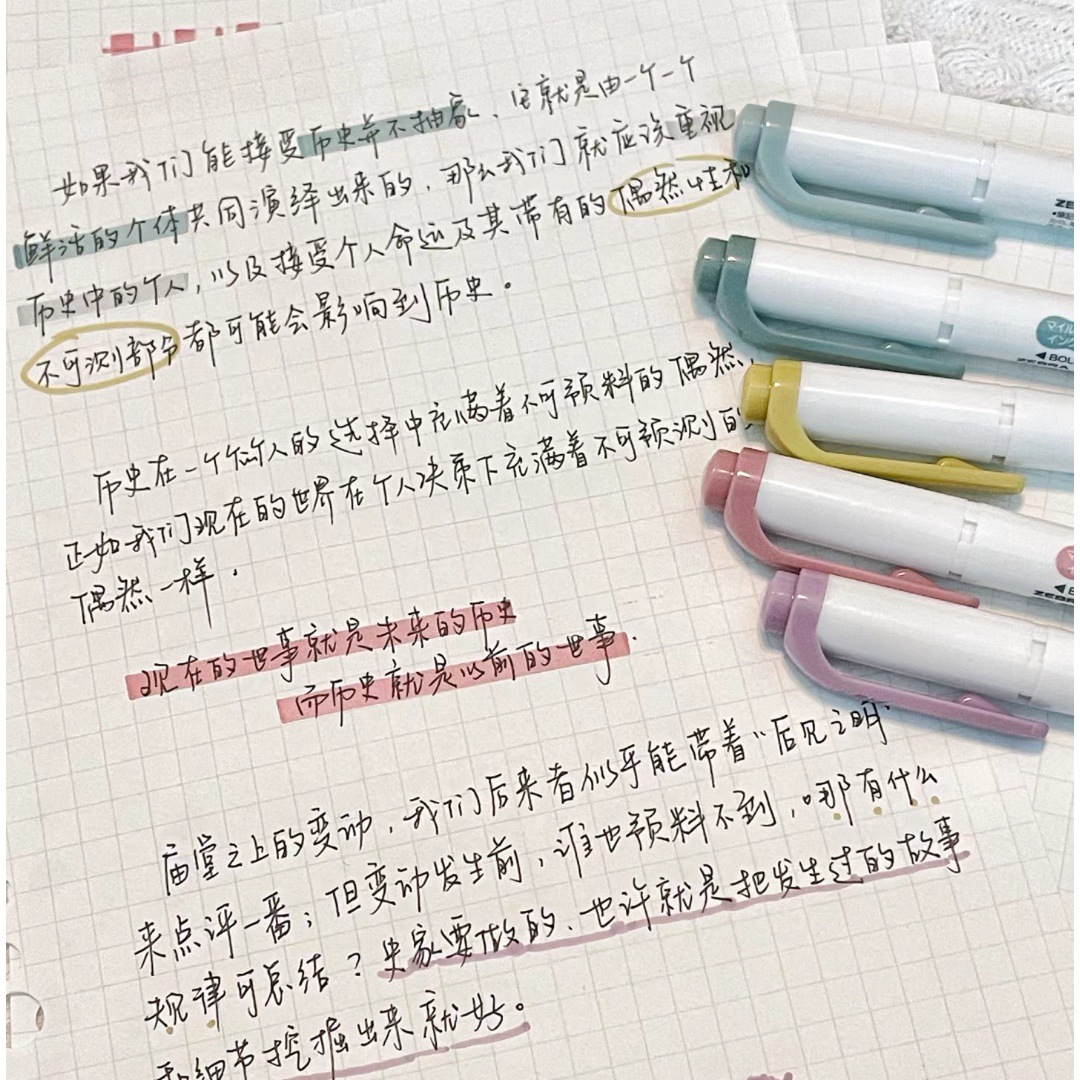 如果我们能接受历史并不抽象、它就是由一个一个
鲜活的个体共同演绎出来的，那么我们就应该重视
历史中的个人，以及接受个人命运及其带有的偶然性和
不可测部分都可能会影响到历史。
历史在一个个人的选择中充满着不可预料的偶然，
正如我们现在的世界在个人决策下充满着不可预测的
偶然一样．
现在的世事就是未来的历史
而历史就是以前的世事．
庙堂之上的变动，我们后来者似乎能带着“后见之明”
来点评一番；但变动发生前，谁也预料不到，哪有什么
规律可总结？史家要做的、也许就是把发生过的故事
和细节挖掘出来就好。
ZE
マイル
インク
◀BOL
ZEBRA
ZEBRA